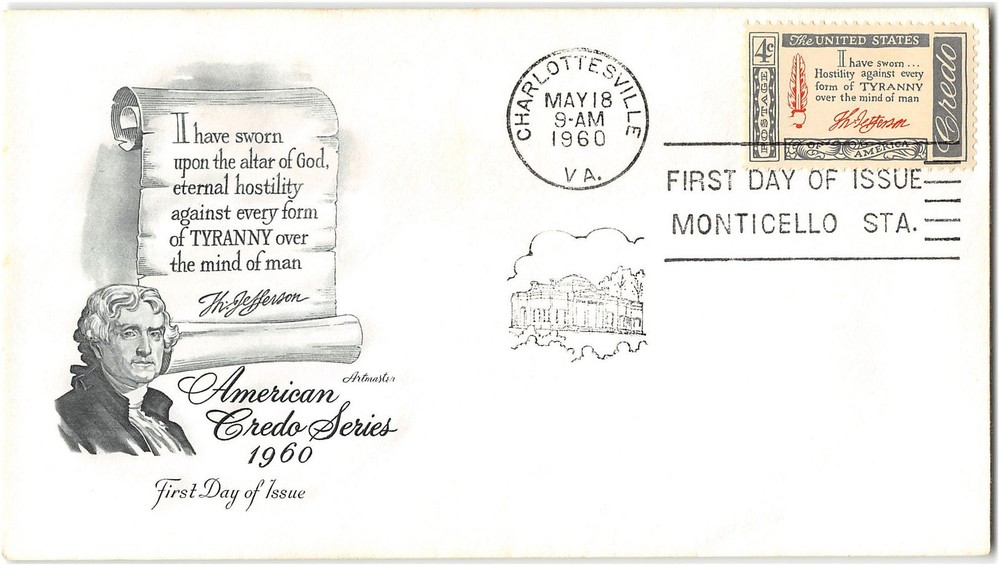 I have sworn
upon the altar of God,
eternal hostility
against every form
of TYRANNY over
the mind of man
Th. Jefferson
Artmaster
American
Credo Series
1960
First Day of Issue
CHARLOTTESVILLE
MAY 18
9-AM
1960
VA.
The UNITED STATES
4c
POSTAGE
I have sworn...
Hostility against every
form of TYRANNY
over the mind of man
Th Jefferson
OF AMERICA
Credo
FIRST DAY OF ISSUE
MONTICELLO STA.